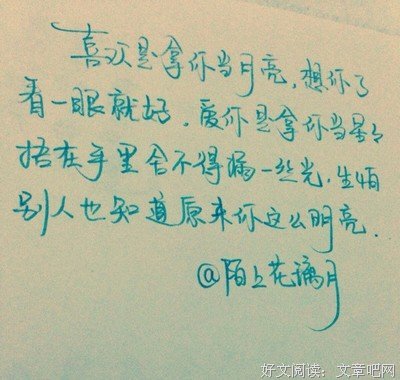 喜欢是拿你当月亮,想你了
看一眼就好.爱你是拿你当星星
捂在手里舍不得漏一丝光.生怕
别人也知道原来你这么明亮.
@陌上花漓月
好文阅读:文章吧网